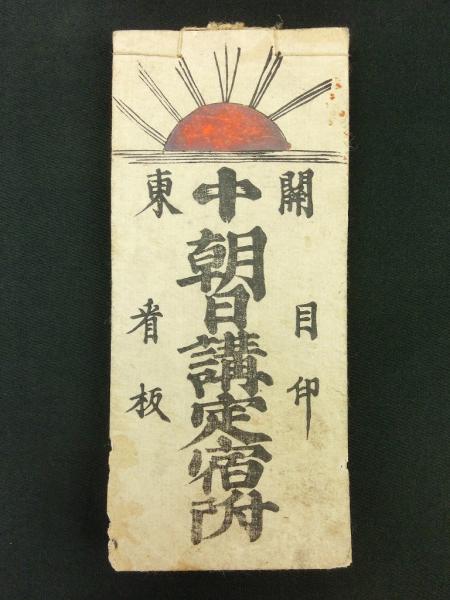 関 目印
中 朝日講定宿附
東 看板